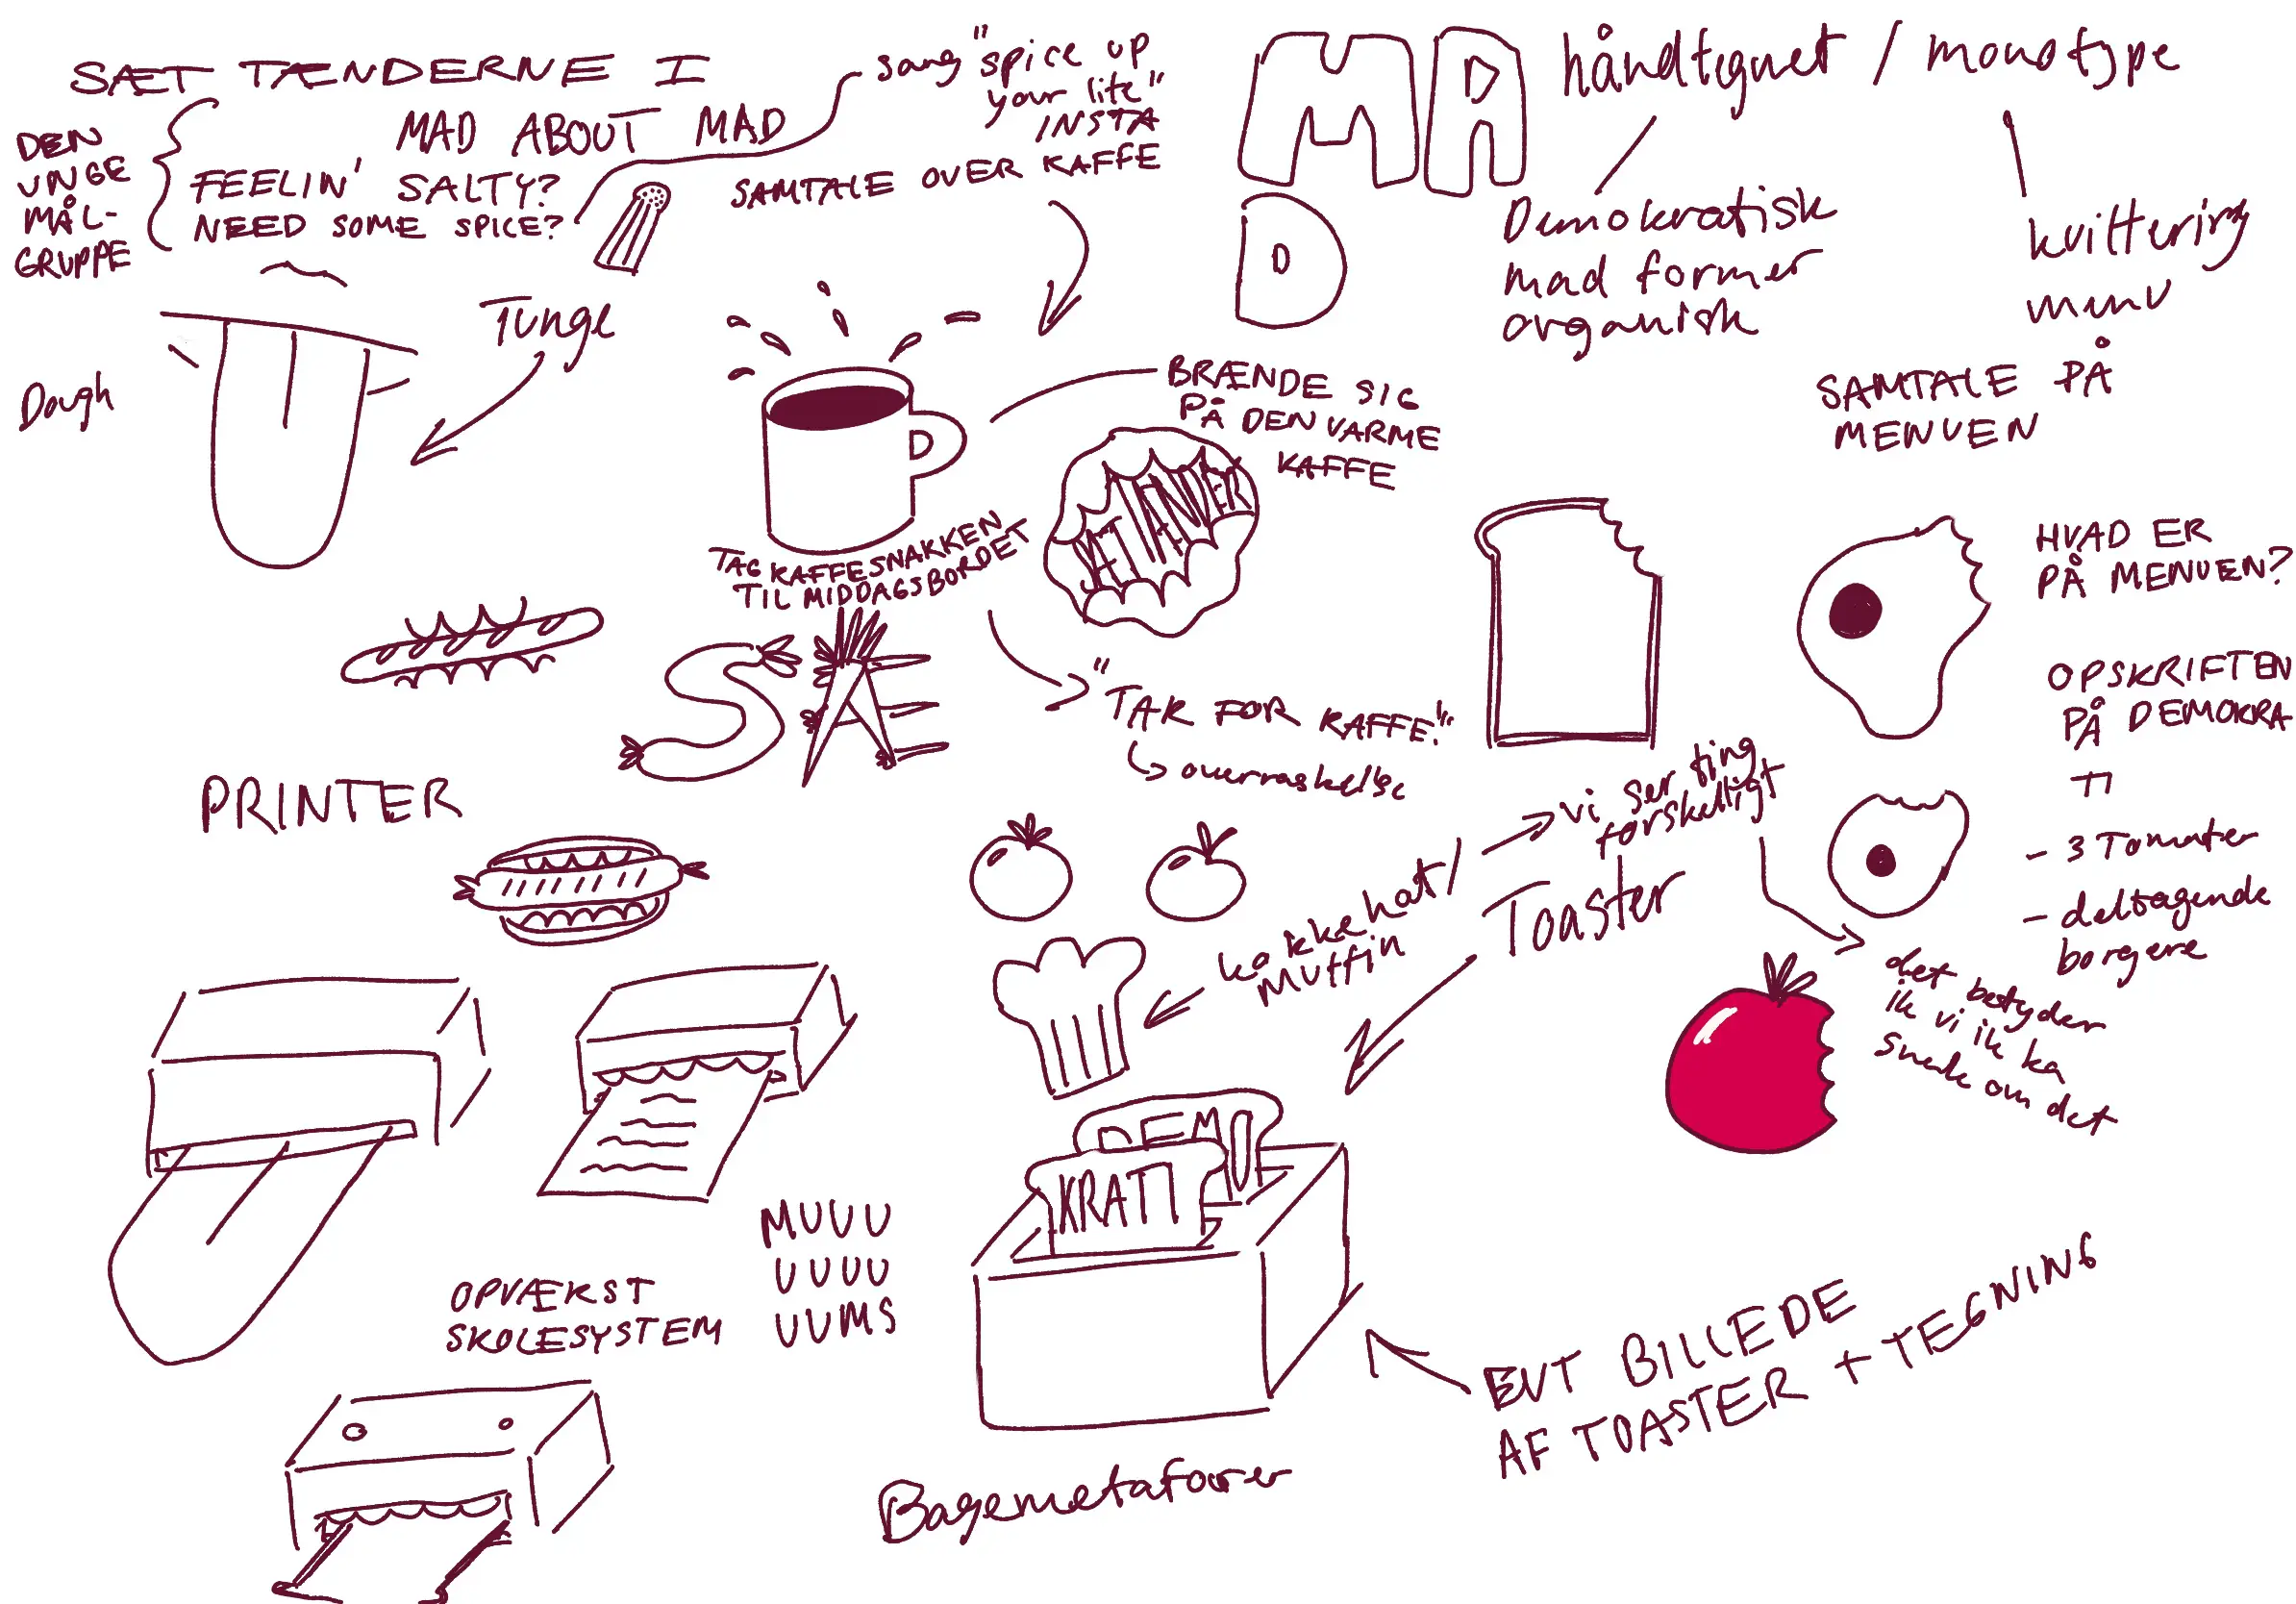 SÆT TÆNDERNE I
MAD ABOUT MAD
DEN
UNGE
MÅL-
GRUPPE
FEELIN' SALTY?
NEED SOME SPICE?
sang "spice up
your life"
INSTA
SAMTALE OVER KAFFE
MA
D
D
D
håndtegnet / monotype
Demokratisk
mad former
organisk
kvittering
menu
SAMTALE PÅ
MENUEN
Tunge
Dough
D
BRÆNDE SIG
PÅ DEN VARME
KAFFE
SÆT TÆNDER
TAG KAFFESNAKKEN
TIL MIDDAGSBORDET
HVAD ER
PÅ MENUEN?
OPSKRIFTEN
PÅ DEMOKRA
TI
- 3 Tomater
- deltagende
borgere
SÆ
"TAK FOR KAFFE!"
overraskelse
PRINTER
vi ser ting
forskelligt
kokkehat/
Muffin
Toaster
det betyder
ik vi ik ka
snak om det
DEMO
KRATI
MUUU
UUUU
UUMS
OPVÆKST
SKOLESYSTEM
EVT BILLEDE
AF TOASTER + TEGNING
Bagemetaforer